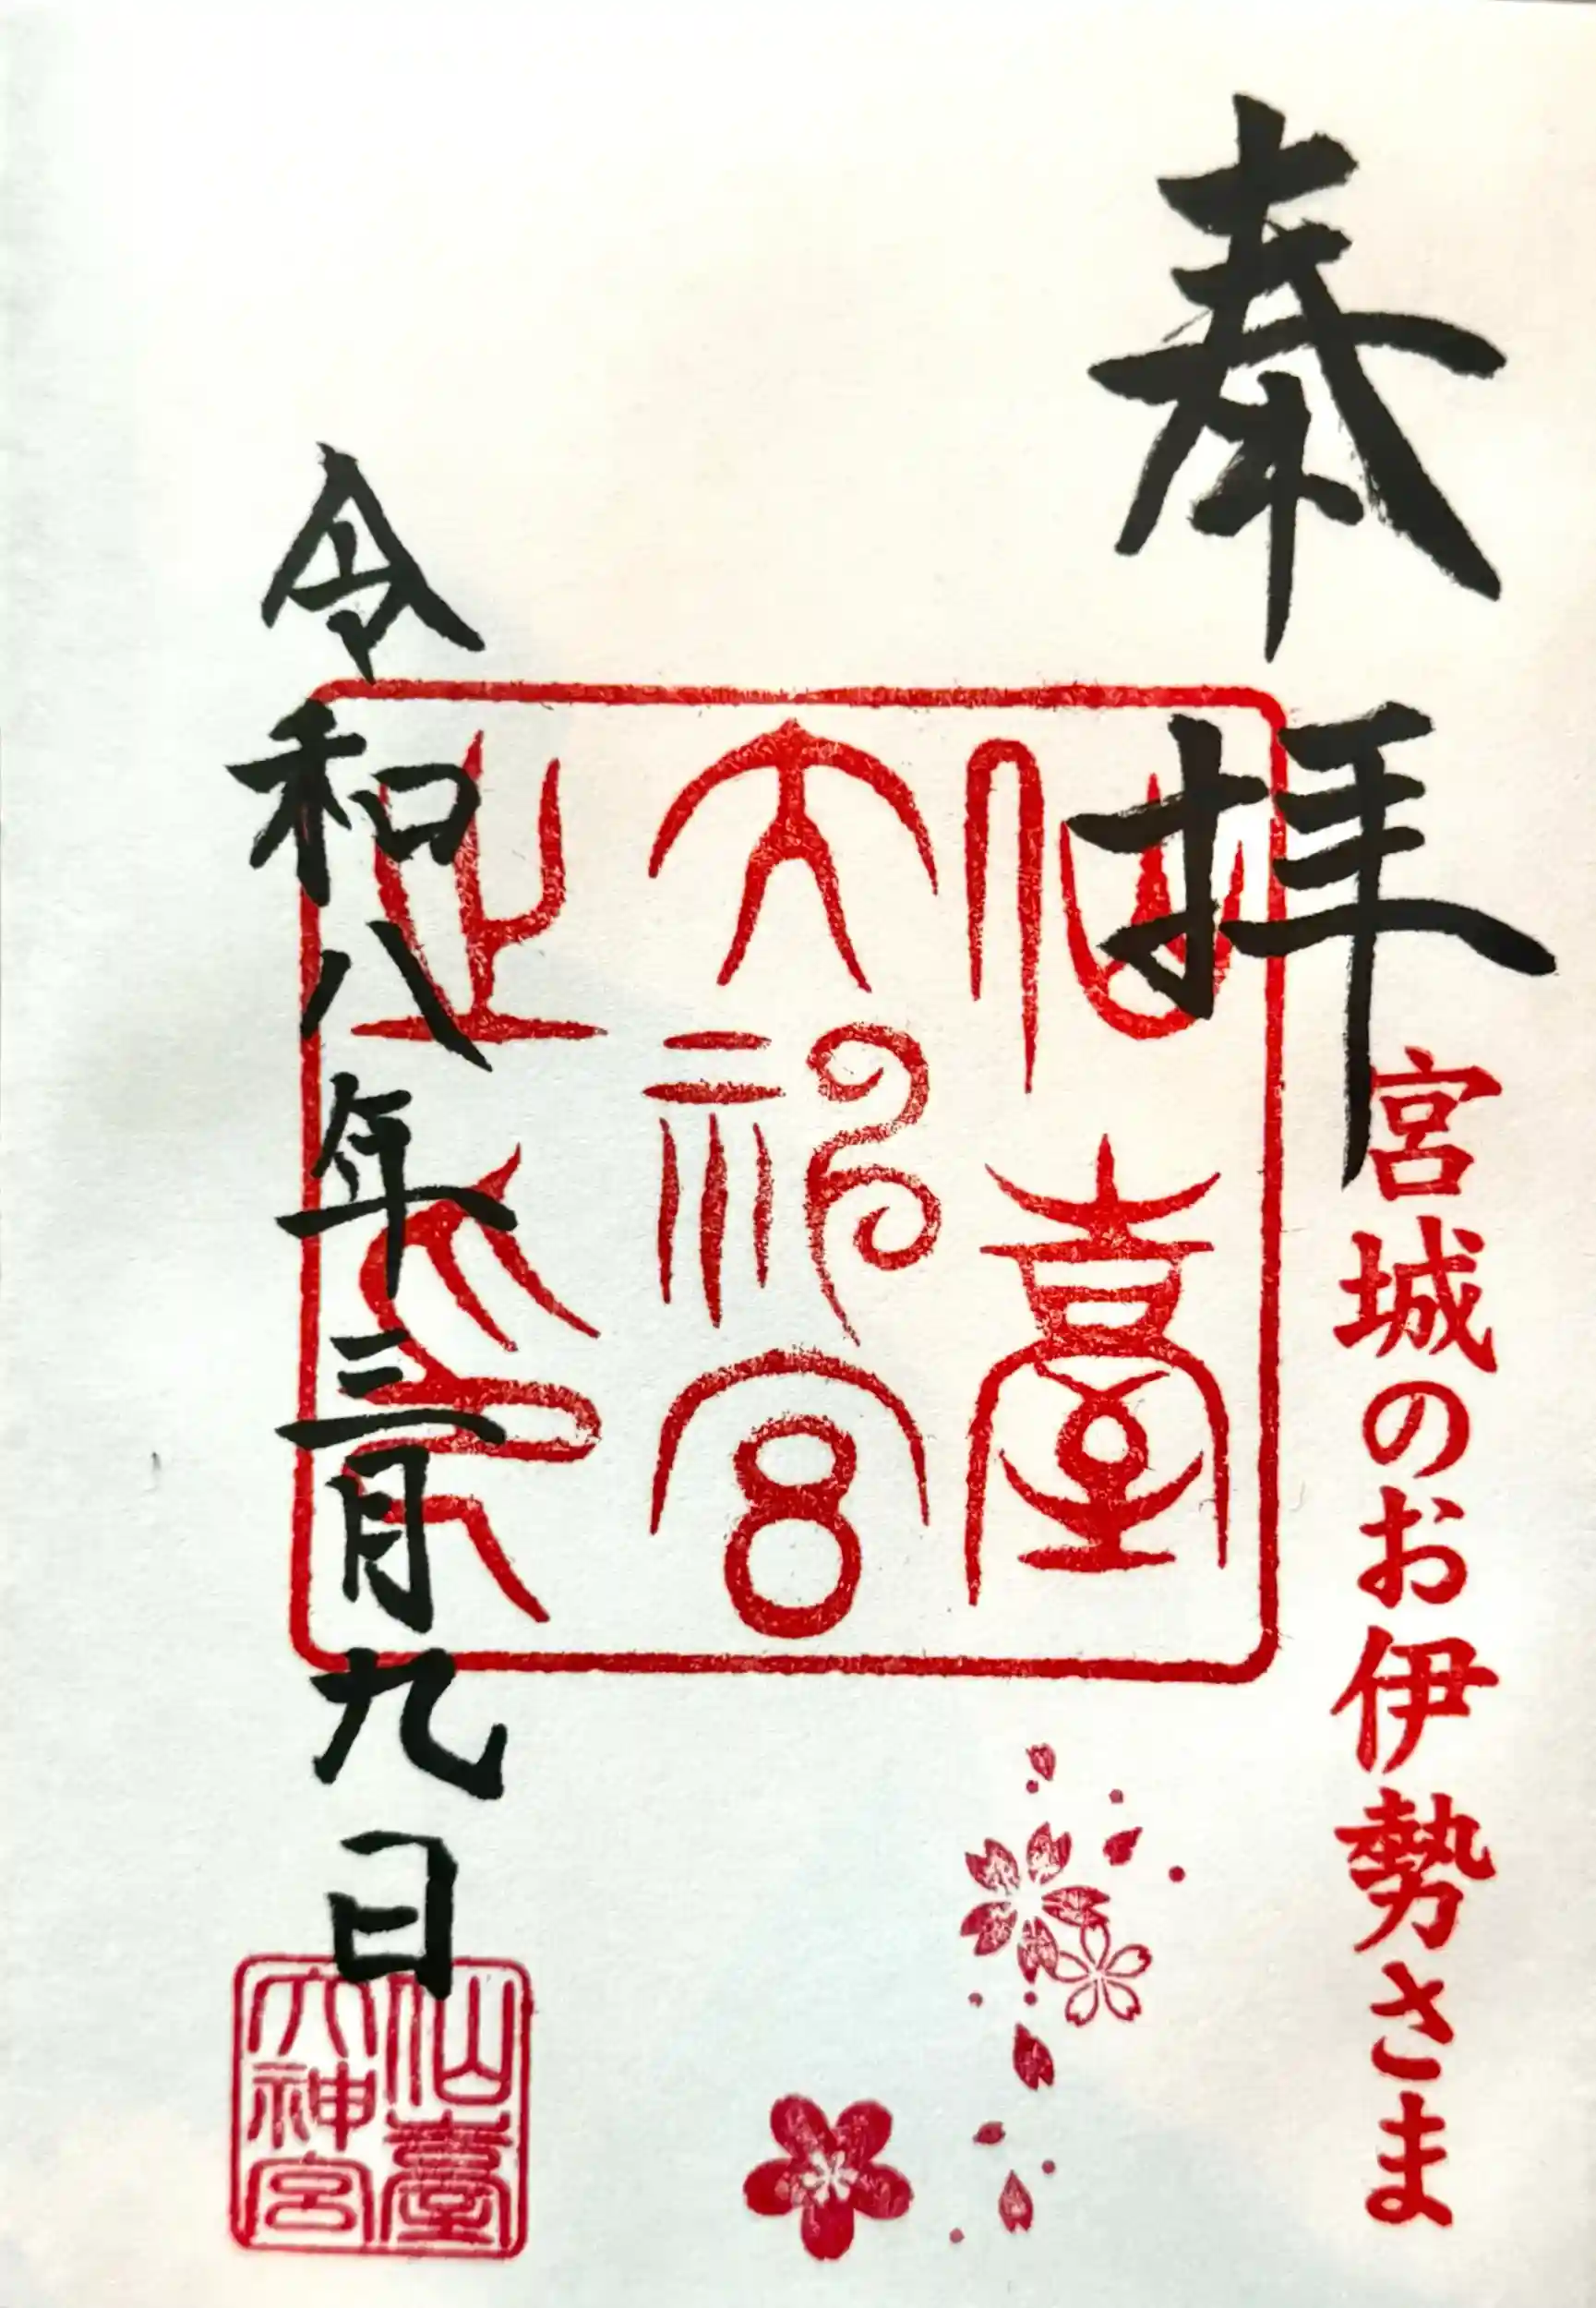 奉拝
宮城のお伊勢さま
仙臺
大神宮
之印
令和八年三月九日
仙臺
大神宮